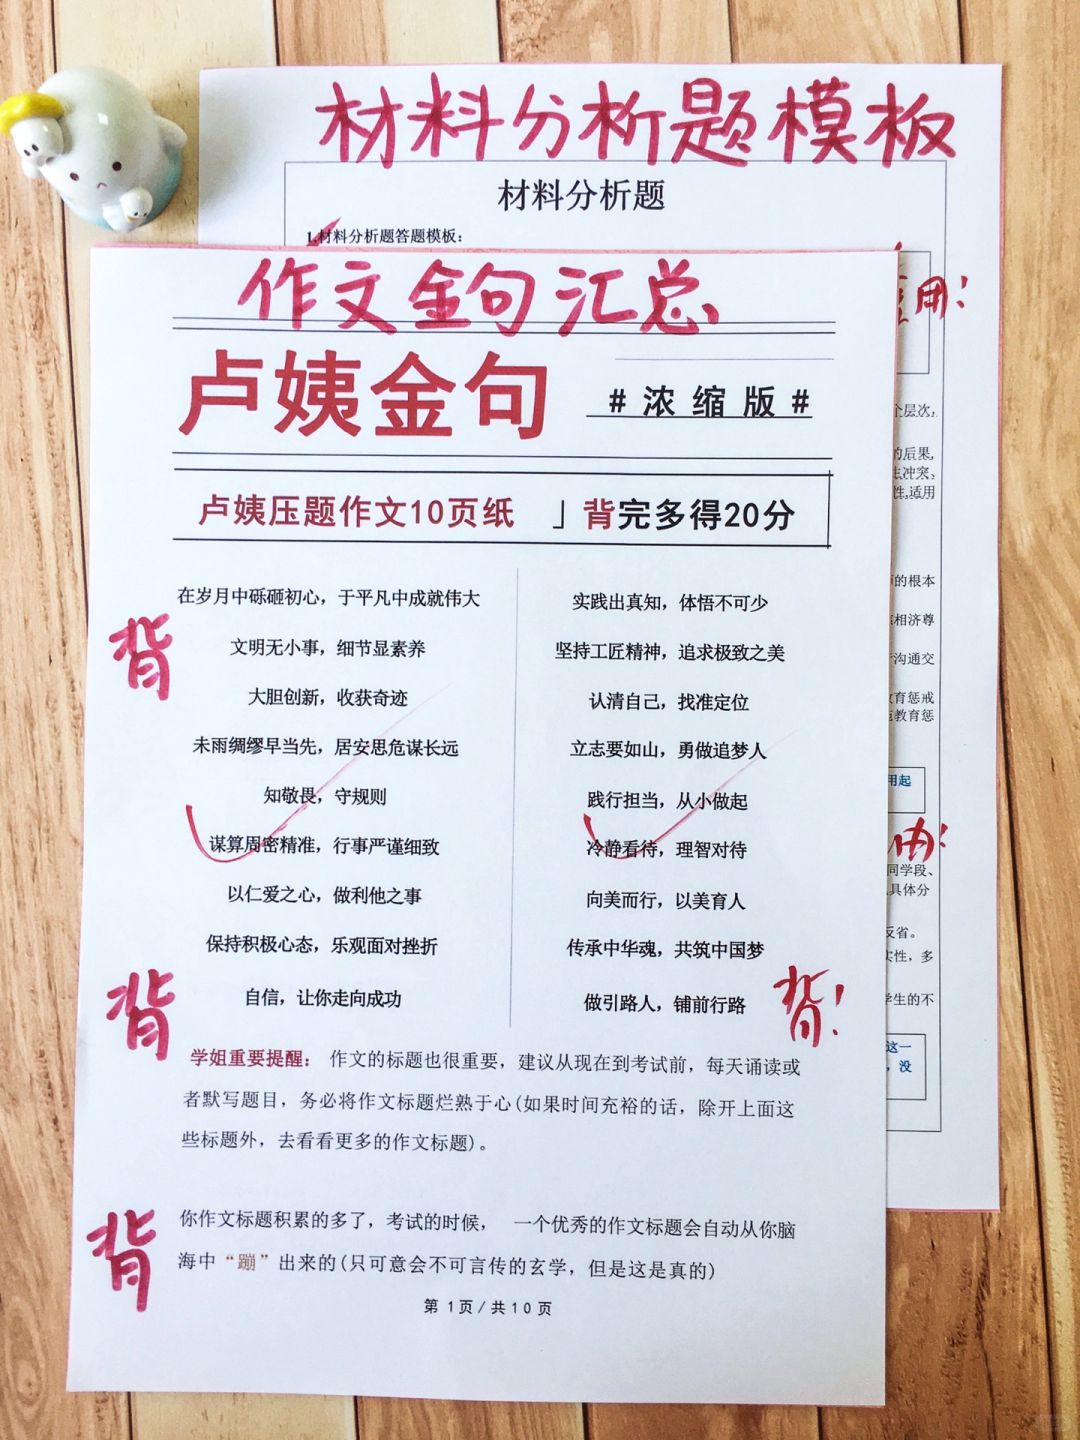 材料分析题模板
材料分析题
1.材料分析题答题模板：
作文金句汇总
卢姨金句
#浓缩版#
卢姨压题作文10页纸 」背完多得20分
在岁月中砾砸初心，于平凡中成就伟大
文明无小事，细节显素养
大胆创新，收获奇迹
未雨绸缪早当先，居安思危谋长远
知敬畏，守规则
谋算周密精准，行事严谨细致
以仁爱之心，做利他之事
保持积极心态，乐观面对挫折
自信，让你走向成功
实践出真知，体悟不可少
坚持工匠精神，追求极致之美
认清自己，找准定位
立志要如山，勇做追梦人
践行担当，从小做起
冷静看待，理智对待
向美而行，以美育人
传承中华魂，共筑中国梦
做引路人，铺前行路
背
背
背！
学姐重要提醒： 作文的标题也很重要，建议从现在到考试前，每天诵读或
者默写题目，务必将作文标题烂熟于心(如果时间充裕的话，除开上面这
些标题外，去看看更多的作文标题)。
背
你作文标题积累的多了，考试的时候， 一个优秀的作文标题会自动从你脑
海中“蹦”出来的(只可意会不可言传的玄学，但是这是真的)
第 1页/共10页
用！
个层次，
的后果，
冲突、
性,适用
的根本
相济尊
沟通交
教育惩戒
教育惩
用起
同学段、
具体分
反省。
实性，多
学生的不
这一
，没